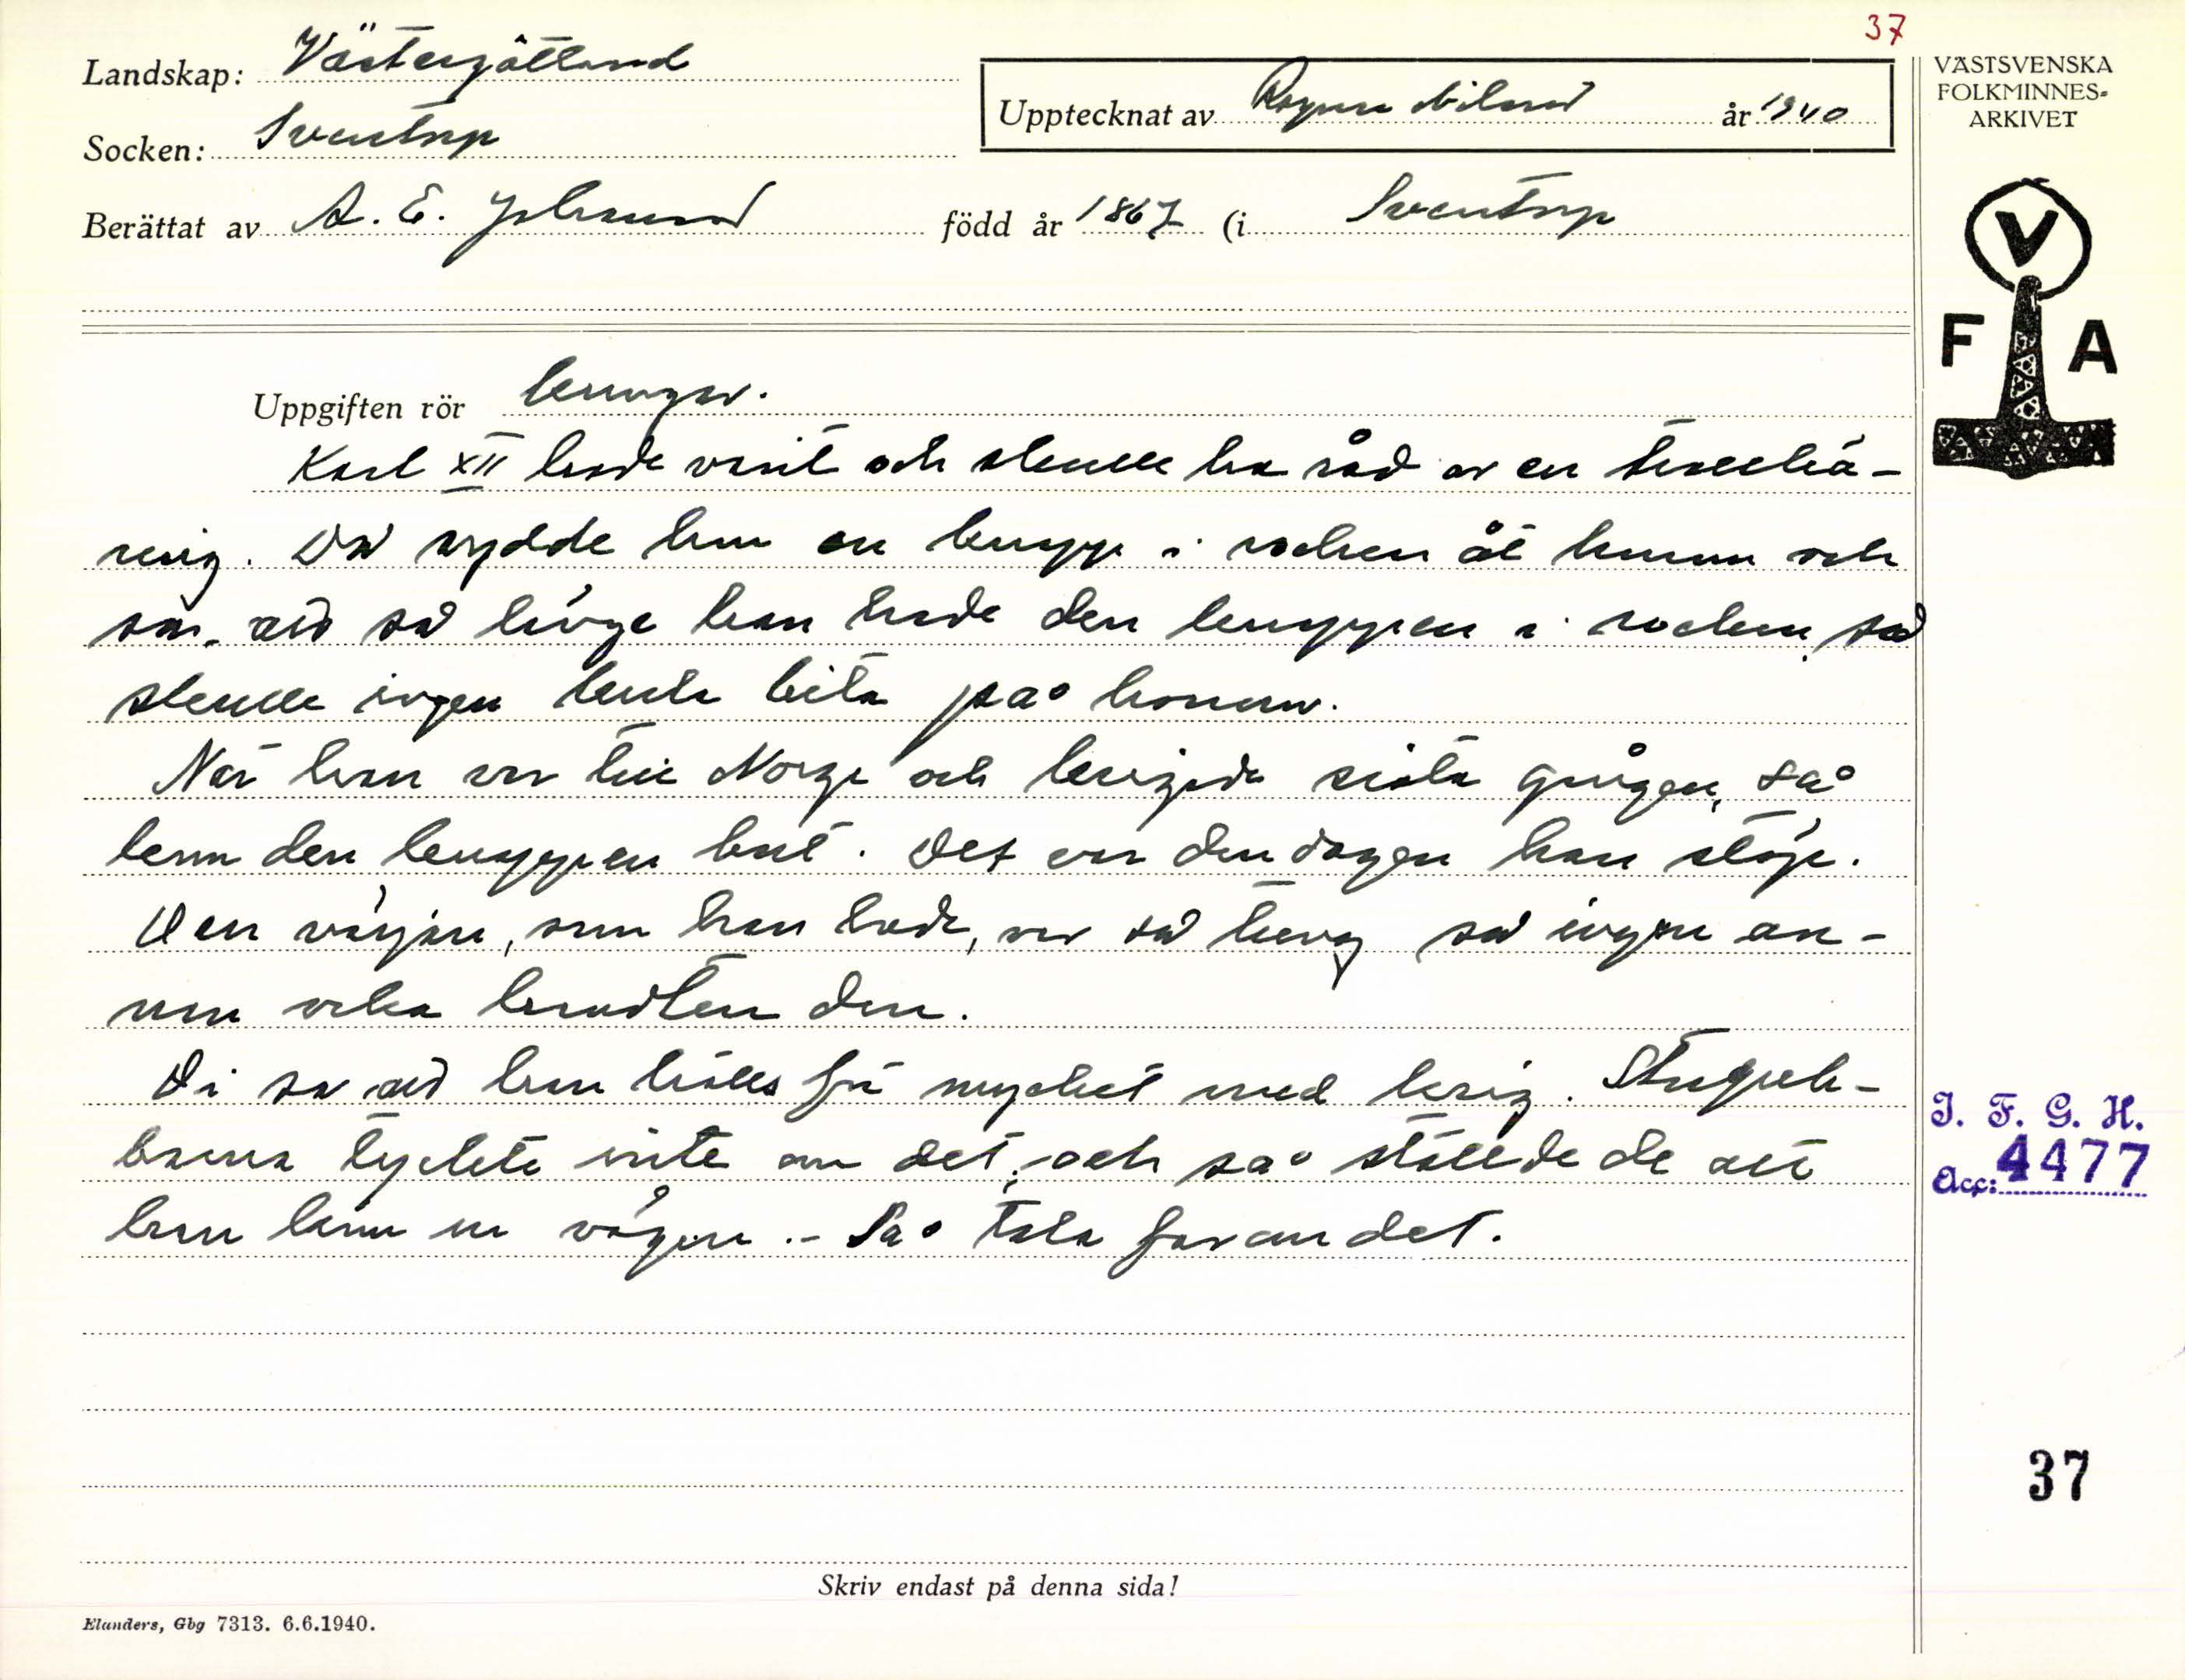 37
Landskap: Västergötland
Socken: Sventorp
Upptecknat av Ragnar Nilsson år 1940
Berättat av A. E. Johansson född år 1867 (i Sventorp
VÄSTSVENSKA
FOLKMINNES-
ARKIVET
V
F A
Uppgiften rör kungar.
Karl XII hade varit och skulle ha råd av en trollkä-
ring. Då sydde hon en knapp i rocken åt honom och
sa, att så länge han hade den knappen i rocken, så
skulle ingen kula bita på honom.
När han var till Norge och krigade sista gången, så
kom den knappen bort. Det var den dagen han stöp.
Den värjan, som han hade, var så tung så ingen an-
nan orka bruka den.
Di sa att han hölls för mycket med krig. Stupek-
barna tyckte inte om det, och så ställde de att
han kom ur vägen. - Så tala far om det.
I. F. G. H.
Acc: 4477
37
Skriv endast på denna sida!
Elanders, Gbg 7313. 6.6.1940.